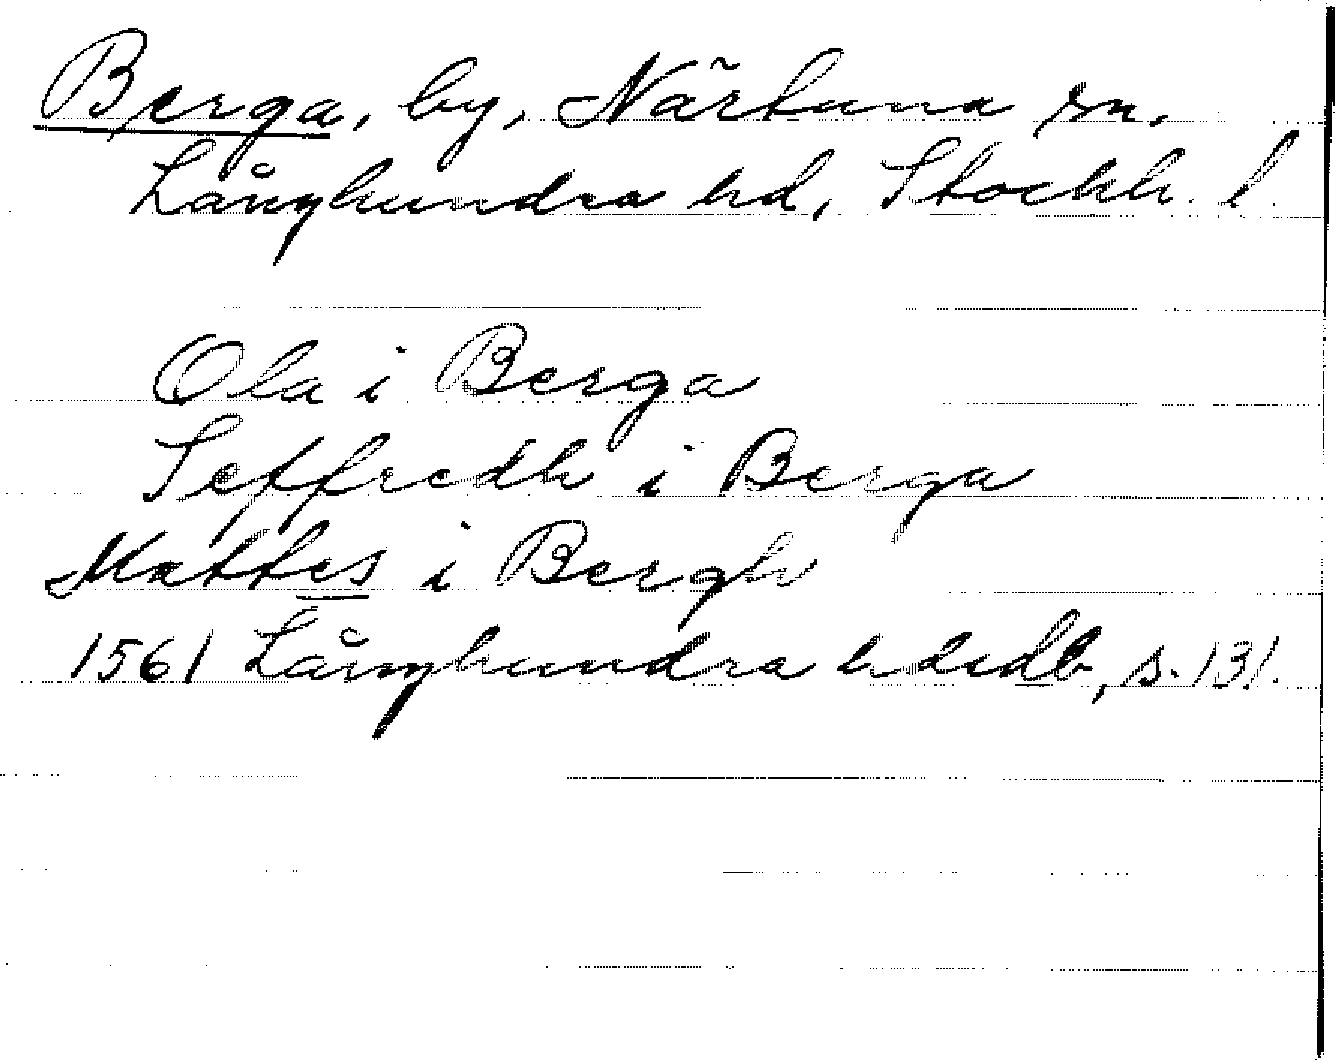 Berga, by, Närtuna sn.
Långhundra hd, Stockh. l.
Ola i Berga
Seffredh i Berga
Mattes i Bergh
1561 Långhundra hdsdb, s. 131.